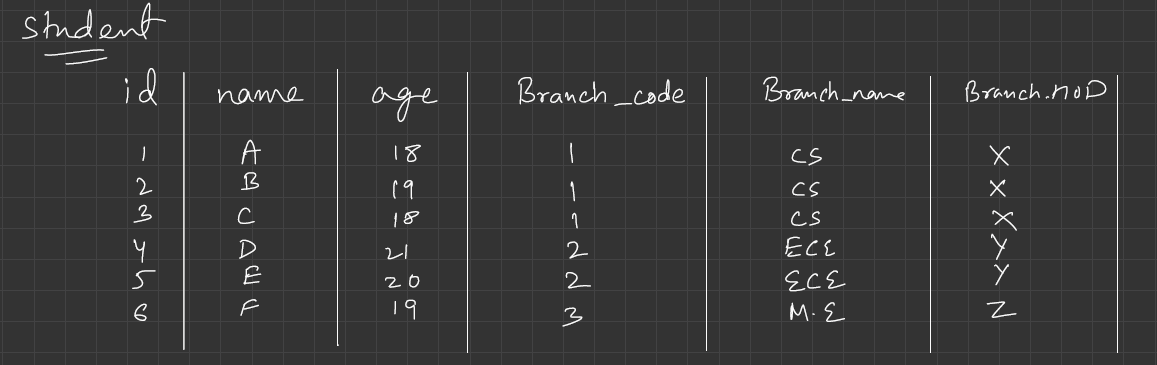 Student
id name age Branch_code Branch_name Branch.HOD
1 A 18 1 CS X
2 B 19 1 CS X
3 C 18 1 CS X
4 D 21 2 ECE Y
5 E 20 2 ECE Y
6 F 19 3 M.E Z